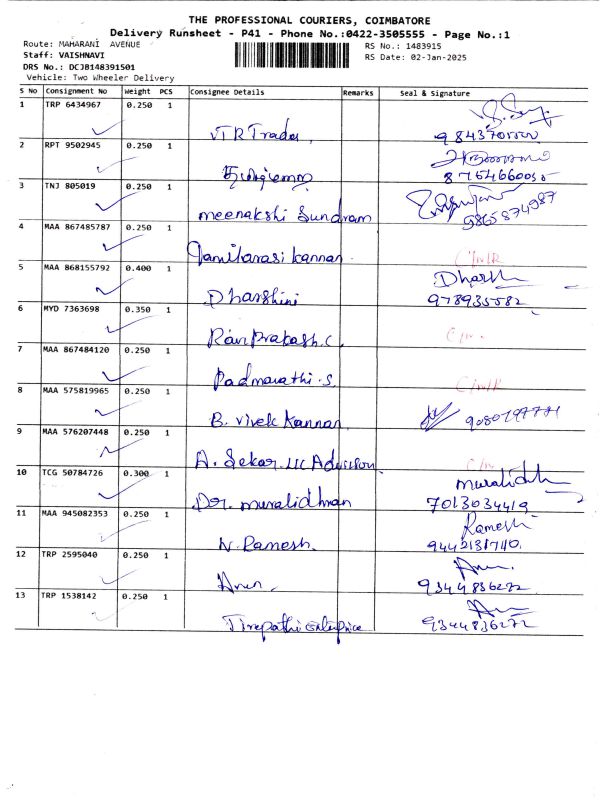 THE PROFESSIONAL COURIERS, COIMBATORE
Delivery Runsheet - P41 - Phone No.:0422-3505555 - Page No.:1
Route: MAHARANI AVENUE
RS No.: 1483915
Staff: VAISHNAVI
RS Date: 02-Jan-2025
DRS No.: DCJB148391501
Vehicle: Two Wheeler Delivery
S No Consignment No Weight PCS Consignee Details Remarks Seal & Signature
1 TRP 6434967 0.250 1
VTR Trades,
2 RPT 9502945 0.250 1
8754666050
3 TNJ 805019 0.250 1
meenakshi Sundram 9865874987
4 MAA 867485787 0.250 1
Tamilarasi Kannan.
5 MAA 868155792 0.400 1
Dharshini 978935582
6 MYD 7363698 0.350 1
Ravi Prakash.C.
7 MAA 867484120 0.250 1
Padmavathi.S.
8 MAA 575819965 0.250 1
B. Vivek Kannan
9 MAA 576207448 0.250 1
A. Sekar. LIC Advisor
10 TCG 50784726 0.300 1
muralidh
Dr. muralidhran 7013034419
11 MAA 945082353 0.250 1
Ramesh
N. Ramesh. 9442131740.
12 TRP 2595040 0.250 1
Arun.
Arun. 9344836272
13 TRP 1538142 0.250 1
Tirupathi Enterprice 9344836272